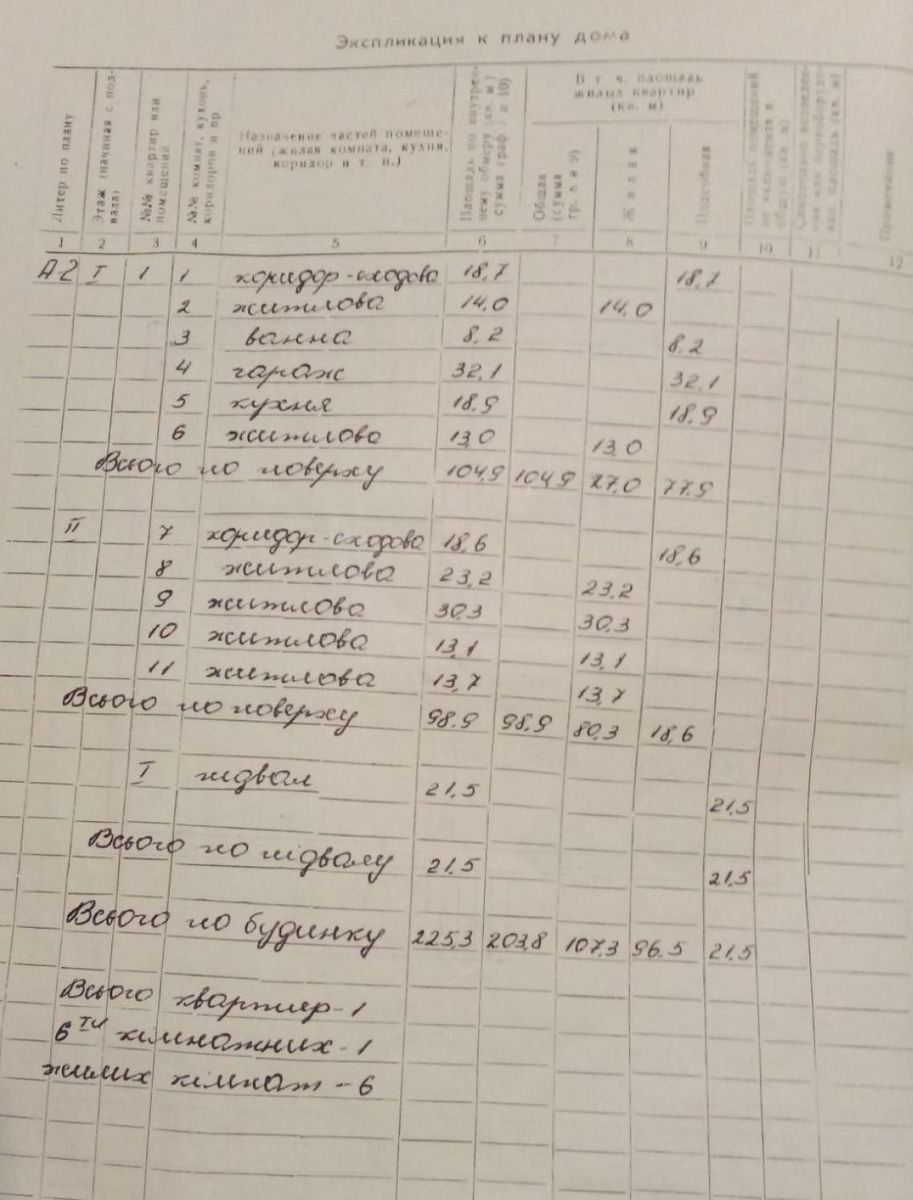 Экспликация к плану дома
Литер по плану
Этаж (начиная с подвала)
№№ квартир или помещений
№№ комнат, кухонь, коридоров и пр.
Назначение частей помещений (жилая комната, кухня, коридор и т. п.)
Площадь по внутреннему обмеру (кв. м) сумма граф 7 и 10)
В т ч. площадь жилых квартир (кв. м)
Общая (сумма гр. 8 и 9)
Жилая
Подсобная
Примечание
1 2 3 4 5 6 7 8 9 10 11 12
А-2 I 1 1 коридор-сходова 18,7 18,7
2 житлова 14,0 14,0
3 ванна 8,2 8.2
4 гараж 32,1 32,1
5 кухня 18,9 18,9
6 житлова 13,0 13,0
Всього по поверху 104,9 104,9 27,0 77,9
II 7 коридор-сходова 18,6 18,6
8 житлова 23,2 23,2
9 житлова 30,3 30,3
10 житлова 13,1 13,1
11 житлова 13,7 13,7
Всього по поверху 98.9 98,9 80,3 18,6
I підвал 21,5 21,5
Всього по підвалу 21,5 21,5
Всього по будинку 225,3 203,8 107,3 96.5 21,5
Всього квартир-1
6ти кімнатних-1
жилих кімнат-6